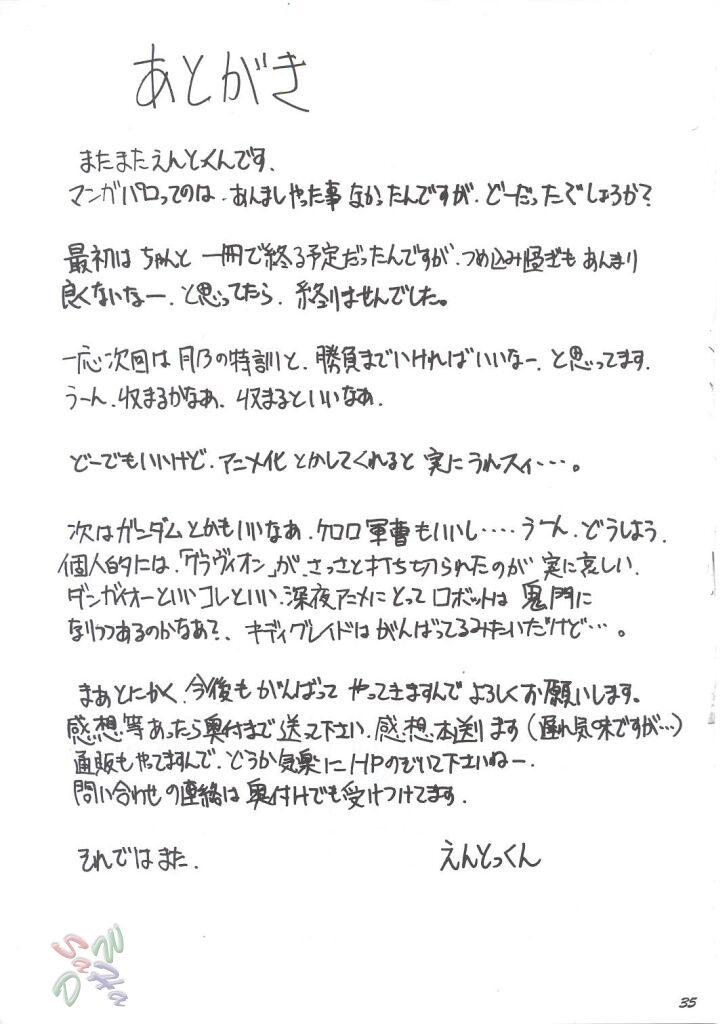 あとがき
またまたえんとっくんです.
マンガパロってのは、あんましやった事なかったんですが、どーだったでしょうか?
最初はちゃんと一冊で終る予定だったんですが、つめ込み過ぎもあんまり
良くないなー、と思ってたら、終りませんでした。
一応次回は月乃の特訓と、勝負までいければいいなー、と思ってます.
うーん、収まるかなあ、収まるといいなあ.
どーでもいいけど、アニメ化とかしてくれると実にうれスィ…。
次はガンダムとかもいいなあ、ケロロ軍曹もいいし‥‥うーん、どうしよう.
個人的には、「グラヴィオン」が、さっさと打ち切られたのが実に哀しい.
ダンガイオーといいコレといい、深夜アニメにとってロボットは鬼門に
なりつつあるのかなあ?、キディグレイドはがんばってるみたいだけど…。
まあとにかく、今後もがんばってやってきますんでよろしくお願いします。
感想等あったら奥付まで送って下さい、感想本送ります(遅れ気味ですが…)
通販もやってますんで、どうか気楽にHPのぞいて下さいねー.
問い合わせの連絡は奥付けでも受けつけてます.
それではまた.
えんとっくん
SaWa
35